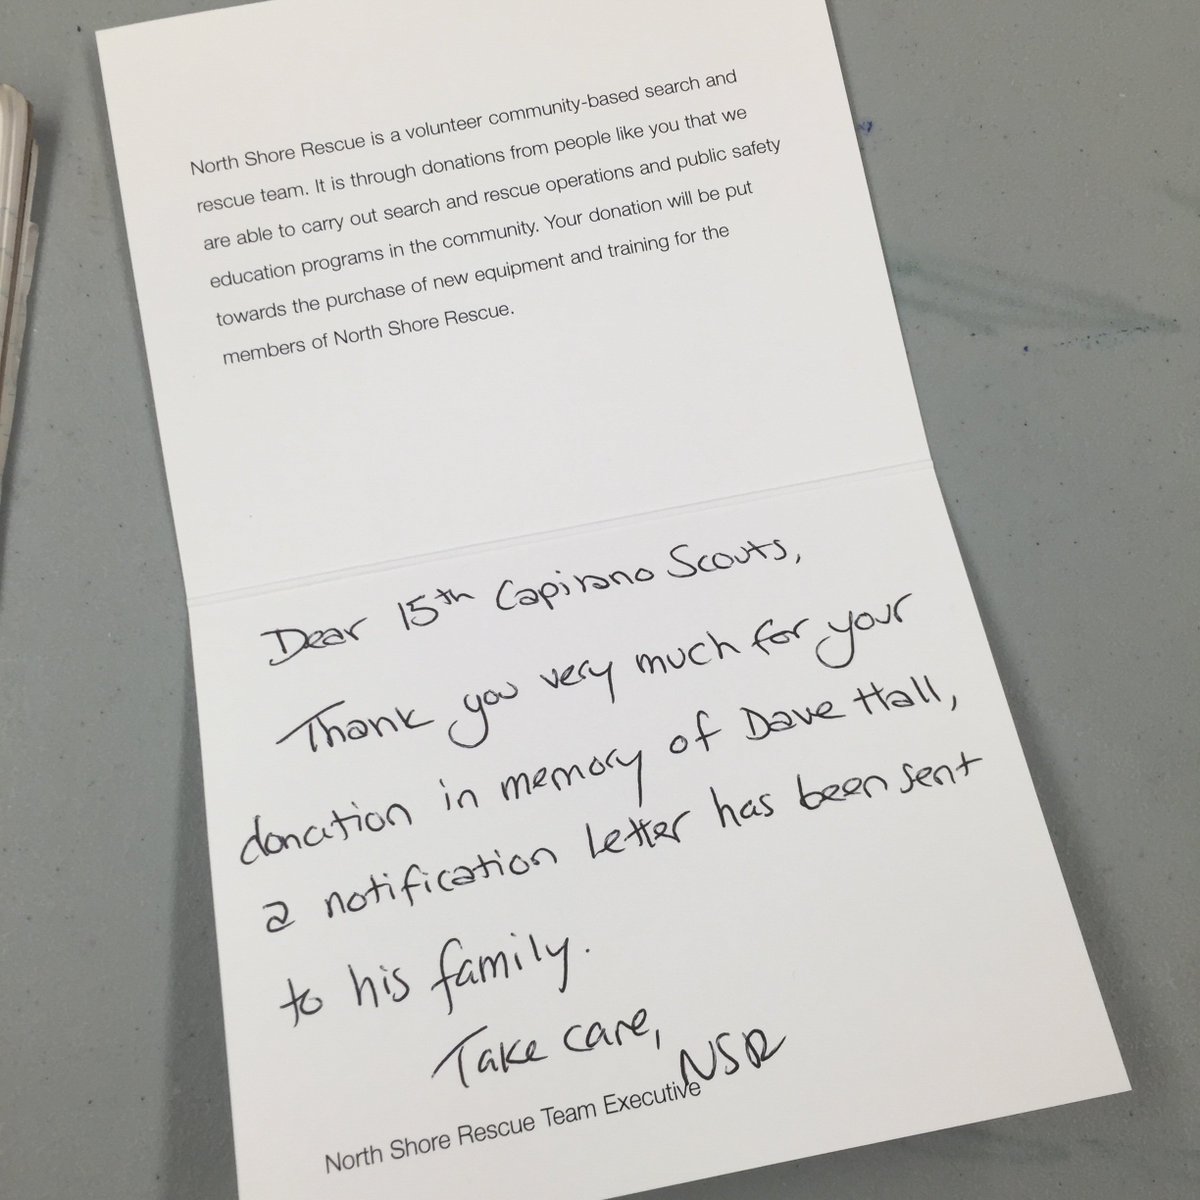 North Shore Rescue is a volunteer community-based search and
rescue team. It is through donations from people like you that we
are able to carry out search and rescue operations and public safety
education programs in the community. Your donation will be put
towards the purchase of new equipment and training for the
members of North Shore Rescue.
Dear 15th Capirano Scouts,
Thank you very much for your
donation in memory of Dave Hall,
a notification letter has been sent
to his family.
Take care,
NSR
North Shore Rescue Team Executive